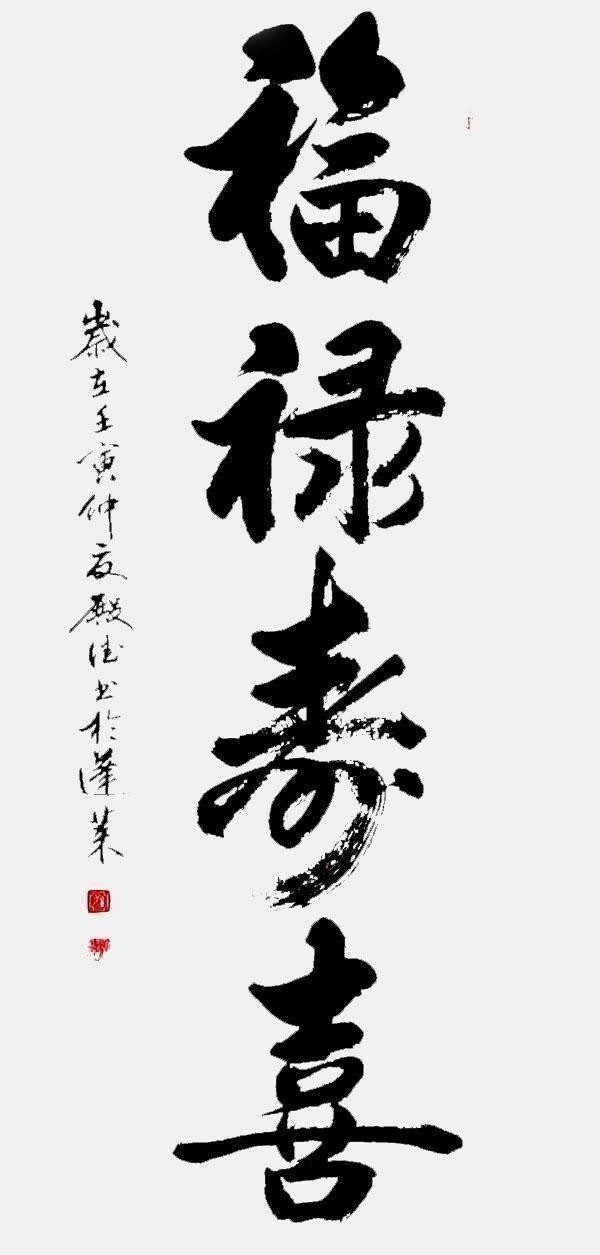 福禄寿喜
歲在壬寅仲夏殿佳书於蓬莱